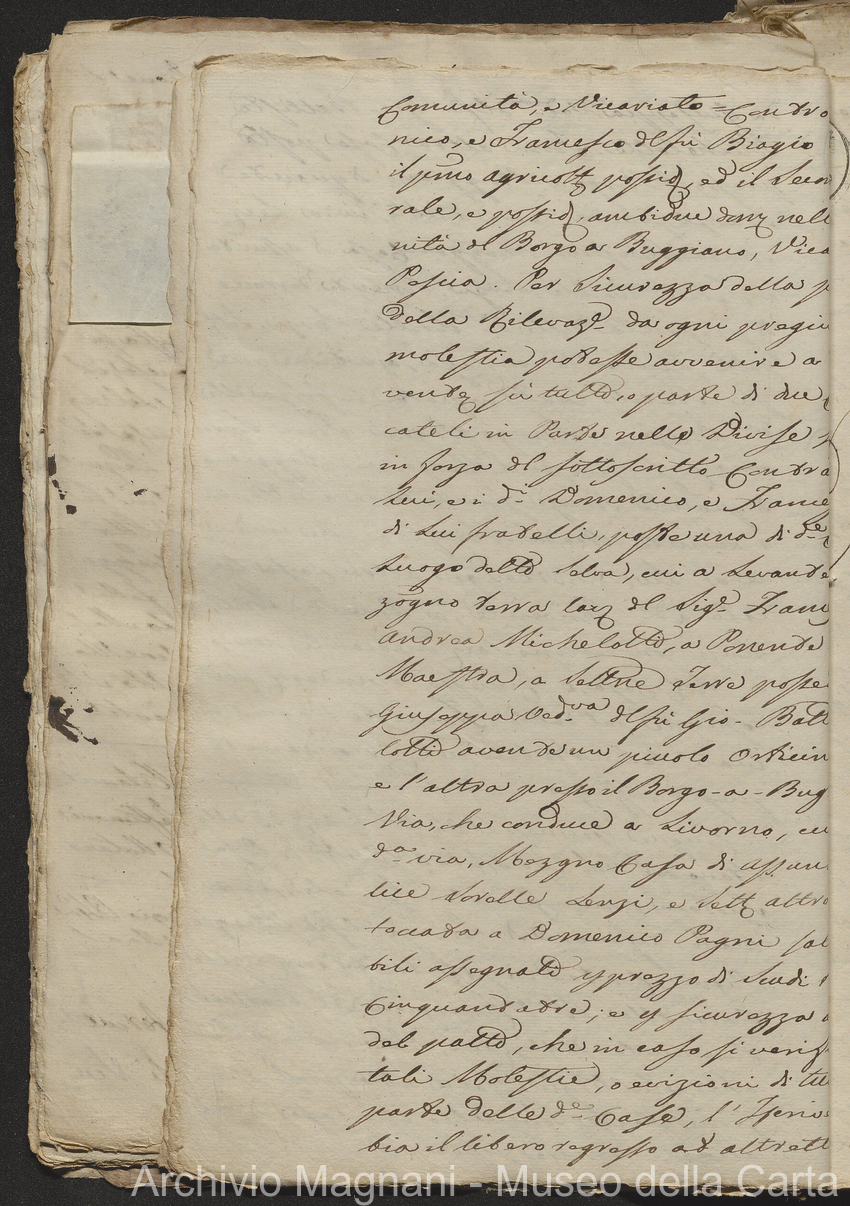 Comunità, e Vicariato = Contro
nico, e Francesco del fù Biagio
il pmo agricolt possid, ed il Secon
rale, e possid, ambidue dom nell
nità del Borgo a Buggiano, Vica
Pescia. Per Sicurezza della p
della Rilevaze da ogni pregiu
molestia potesse avvenire a
vend sù tutto, o parte di due
catel in Parte nelle Divise
in forza del sottoscritto Contra
Seri, e i di Domenico, e France
di Lui fratelli, poste una di de
Luogo detto Selva, cui a Levante
zogno terra del Sige Fran
Andrea Michelotti, a Ponente
Maestra, a Settne Terre posse
Giuseppa Vedva del fù Gio. Batt
lotti avente un piccolo Orticin
e l'altra presso il Borgo-a-Bug
Via, che conduce a Livorno, cu
da via, Mezgno Casa di assun
lice Sorelle Lenzi, e Sett altro
toccata a Domenico Pagni
bili assegnati p prezzo di Scudi
Cinquantatre; e p sicurezza
del patto, che in caso si verif
tali Molestie, o evizioni di tu
parte delle de Case, l'
bia il libero regresso ad altrett
Archivio Magnani - Museo della Carta